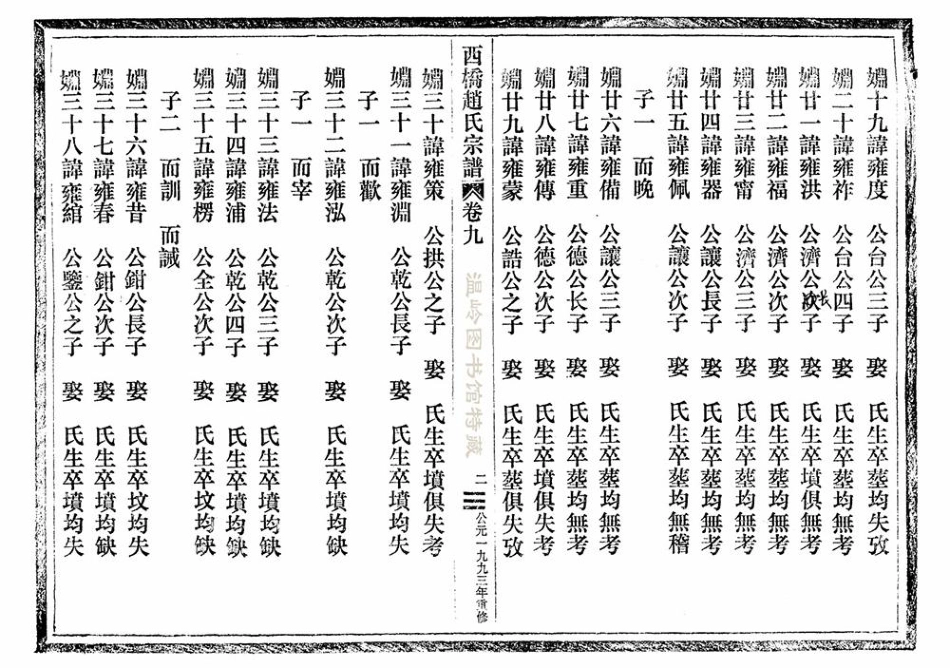 嫻十九諱雍度 公台公三子 娶 氏生卒塟均失攷
嫻二十諱雍祚 公台公四子 娶 氏生卒塟均無考
嫻廿一諱雍洪 公濟公長子 娶 氏生卒墳俱失考
嫻廿二諱雍福 公濟公次子 娶 氏生卒塟均無考
嫻廿三諱雍甯 公濟公三子 娶 氏生卒塟均無考
嫻廿四諱雍器 公讓公長子 娶 氏生卒塟均無考
嫻廿五諱雍佩 公讓公次子 娶 氏生卒塟均無稽
子一 而晚
嫻廿六諱雍備 公讓公三子 娶 氏生卒塟均無考
嫻廿七諱雍重 公德公长子 娶 氏生卒塟均無考
嫻廿八諱雍傳 公德公次子 娶 氏生卒墳俱失考
嫻廿九諱雍蒙 公誥公之子 娶 氏生卒塟俱失攷
西橋趙氏宗譜 卷九 二 公元一九九三年重修
温岭图书馆特藏
嫻三十諱雍策 公拱公之子 娶 氏生卒墳俱失考
嫻三十一諱雍淵 公乾公長子 娶 氏生卒墳均失
子一 而歡
嫻三十二諱雍泓 公乾公次子 娶 氏生卒墳均缺
子一 而宰
嫻三十三諱雍法 公乾公三子 娶 氏生卒墳均缺
嫻三十四諱雍浦 公乾公四子 娶 氏生卒墳均缺
嫻三十五諱雍楞 公全公次子 娶 氏生卒坟均缺
子二 而訓 而誠
嫻三十六諱雍昔 公鉗公長子 娶 氏生卒坟均失
嫻三十七諱雍春 公鉗公次子 娶 氏生卒墳均缺
嫻三十八諱雍綰 公鑒公之子 娶 氏生卒墳均失